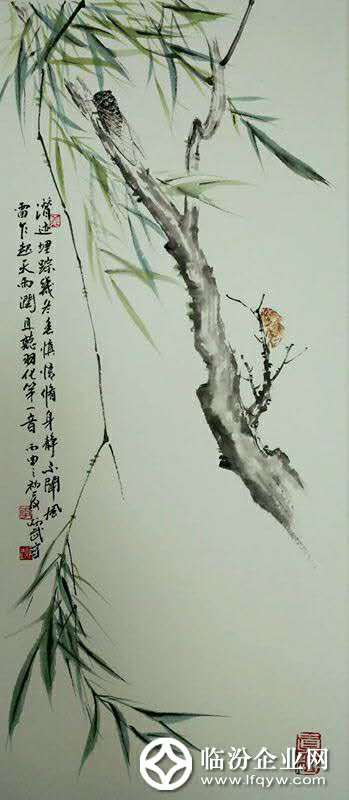 潜迹埋踪几度春惧惊惰身静不闻风
雷乍起天雨润且听羽化第一音丙申之初夏
临汾企业网
www.lfqyw.com